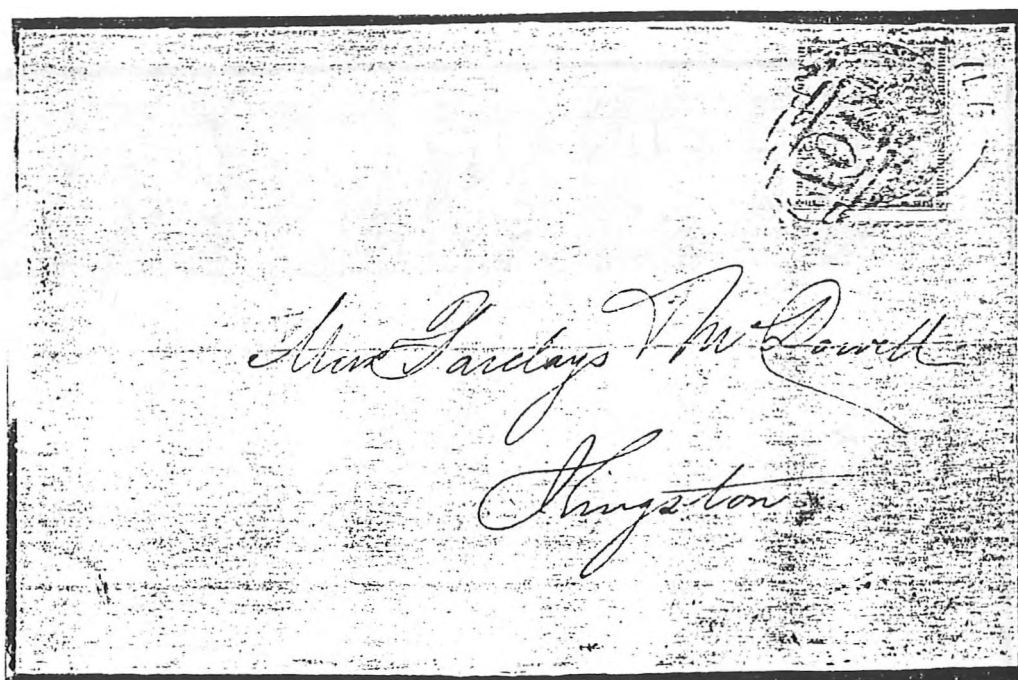 Barclays & McDowell
Kingston